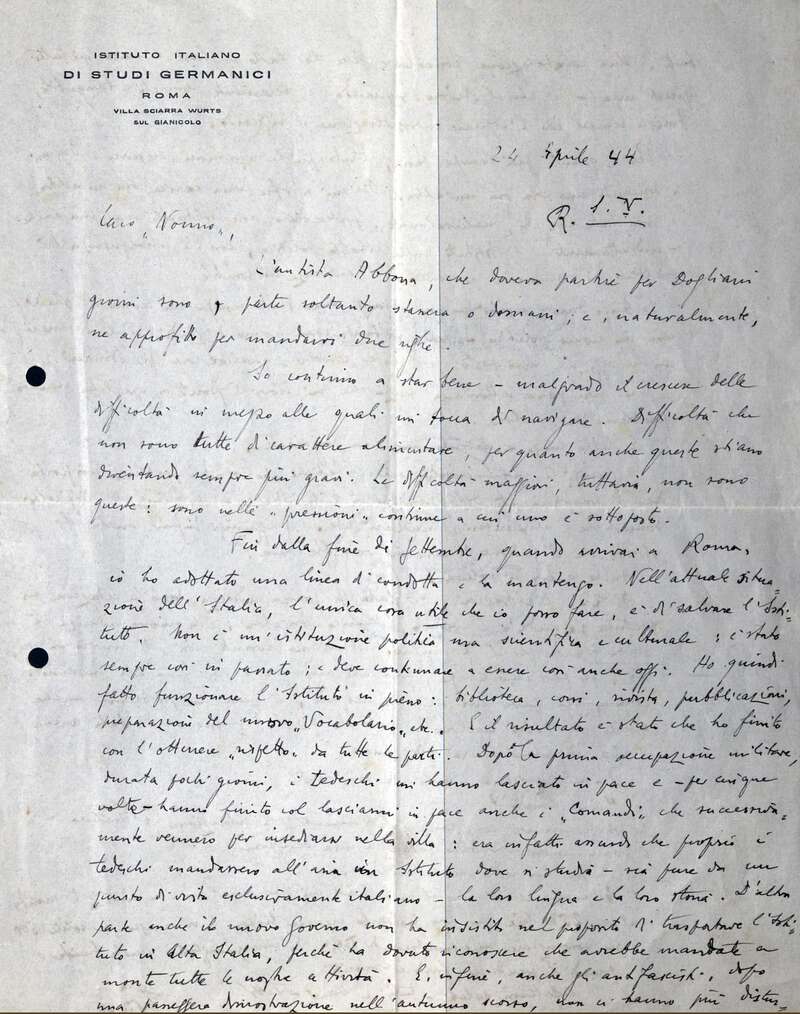 ISTITUTO ITALIANO
DI STUDI GERMANICI
ROMA
VILLA SCIARRA WURTS
SUL GIANICOLO
24 Aprile 44
R. S.V.
Caro „Nonno",
L'autista Abbona, che doveva partire per Dogliani
giorni sono, parte soltanto stasera o domani; e, naturalmente,
ne approfitto per mandarvi due righe.
Io continuo a star bene – malgrado il crescere delle
difficoltà in mezzo alle quali mi tocca di navigare. Difficoltà che
non sono tutte di carattere alimentare, per quanto anche queste stiano
diventando sempre più gravi. Le difficoltà maggiori, tuttavia, non sono
queste: sono nelle „pressioni" continue a cui uno è sottoposto.
Fin dalla fine di settembre, quando arrivai a Roma,
io ho adottato una linea di condotta e la mantengo. Nell'attuale situa-
zione dell'Italia, l'unica cosa utile che io posso fare, è di salvare l'Isti-
tuto. Non è un'istituzione politica ma scientifica e culturale: è stato
sempre così in passato; e deve continuare a essere così anche oggi. Ho quindi
fatto funzionare l'Istituto in pieno: biblioteca, corsi, rivista, pubblicazioni,
preparazione del nuovo „Vocabolario", etc.. E il risultato è stato che ho finito
con l'ottenere „rispetto" da tutte le parti. Dopo la prima occupazione militare,
durata pochi giorni, i tedeschi mi hanno lasciato in pace e – per cinque
volte – hanno finito col lasciarmi in pace anche i „Comandi", che successiva-
mente vennero per insediarsi nella villa: era infatti assurdo che proprio i
tedeschi mandassero all'aria un Istituto dove si studia – sia pure da un
punto di vista esclusivamente italiano – la loro lingua e la loro storia. D'altra
parte anche il nuovo Governo non ha insistito nel proposito di trasportare l'Isti-
tuto in Alta Italia, perché ha dovuto riconoscere che avrebbe mandate a
monte tutte le nostre attività. E, infine, anche gli antifascisti, dopo
una passeggera dimostrazione nell'autunno scorso, non ci hanno più distur-